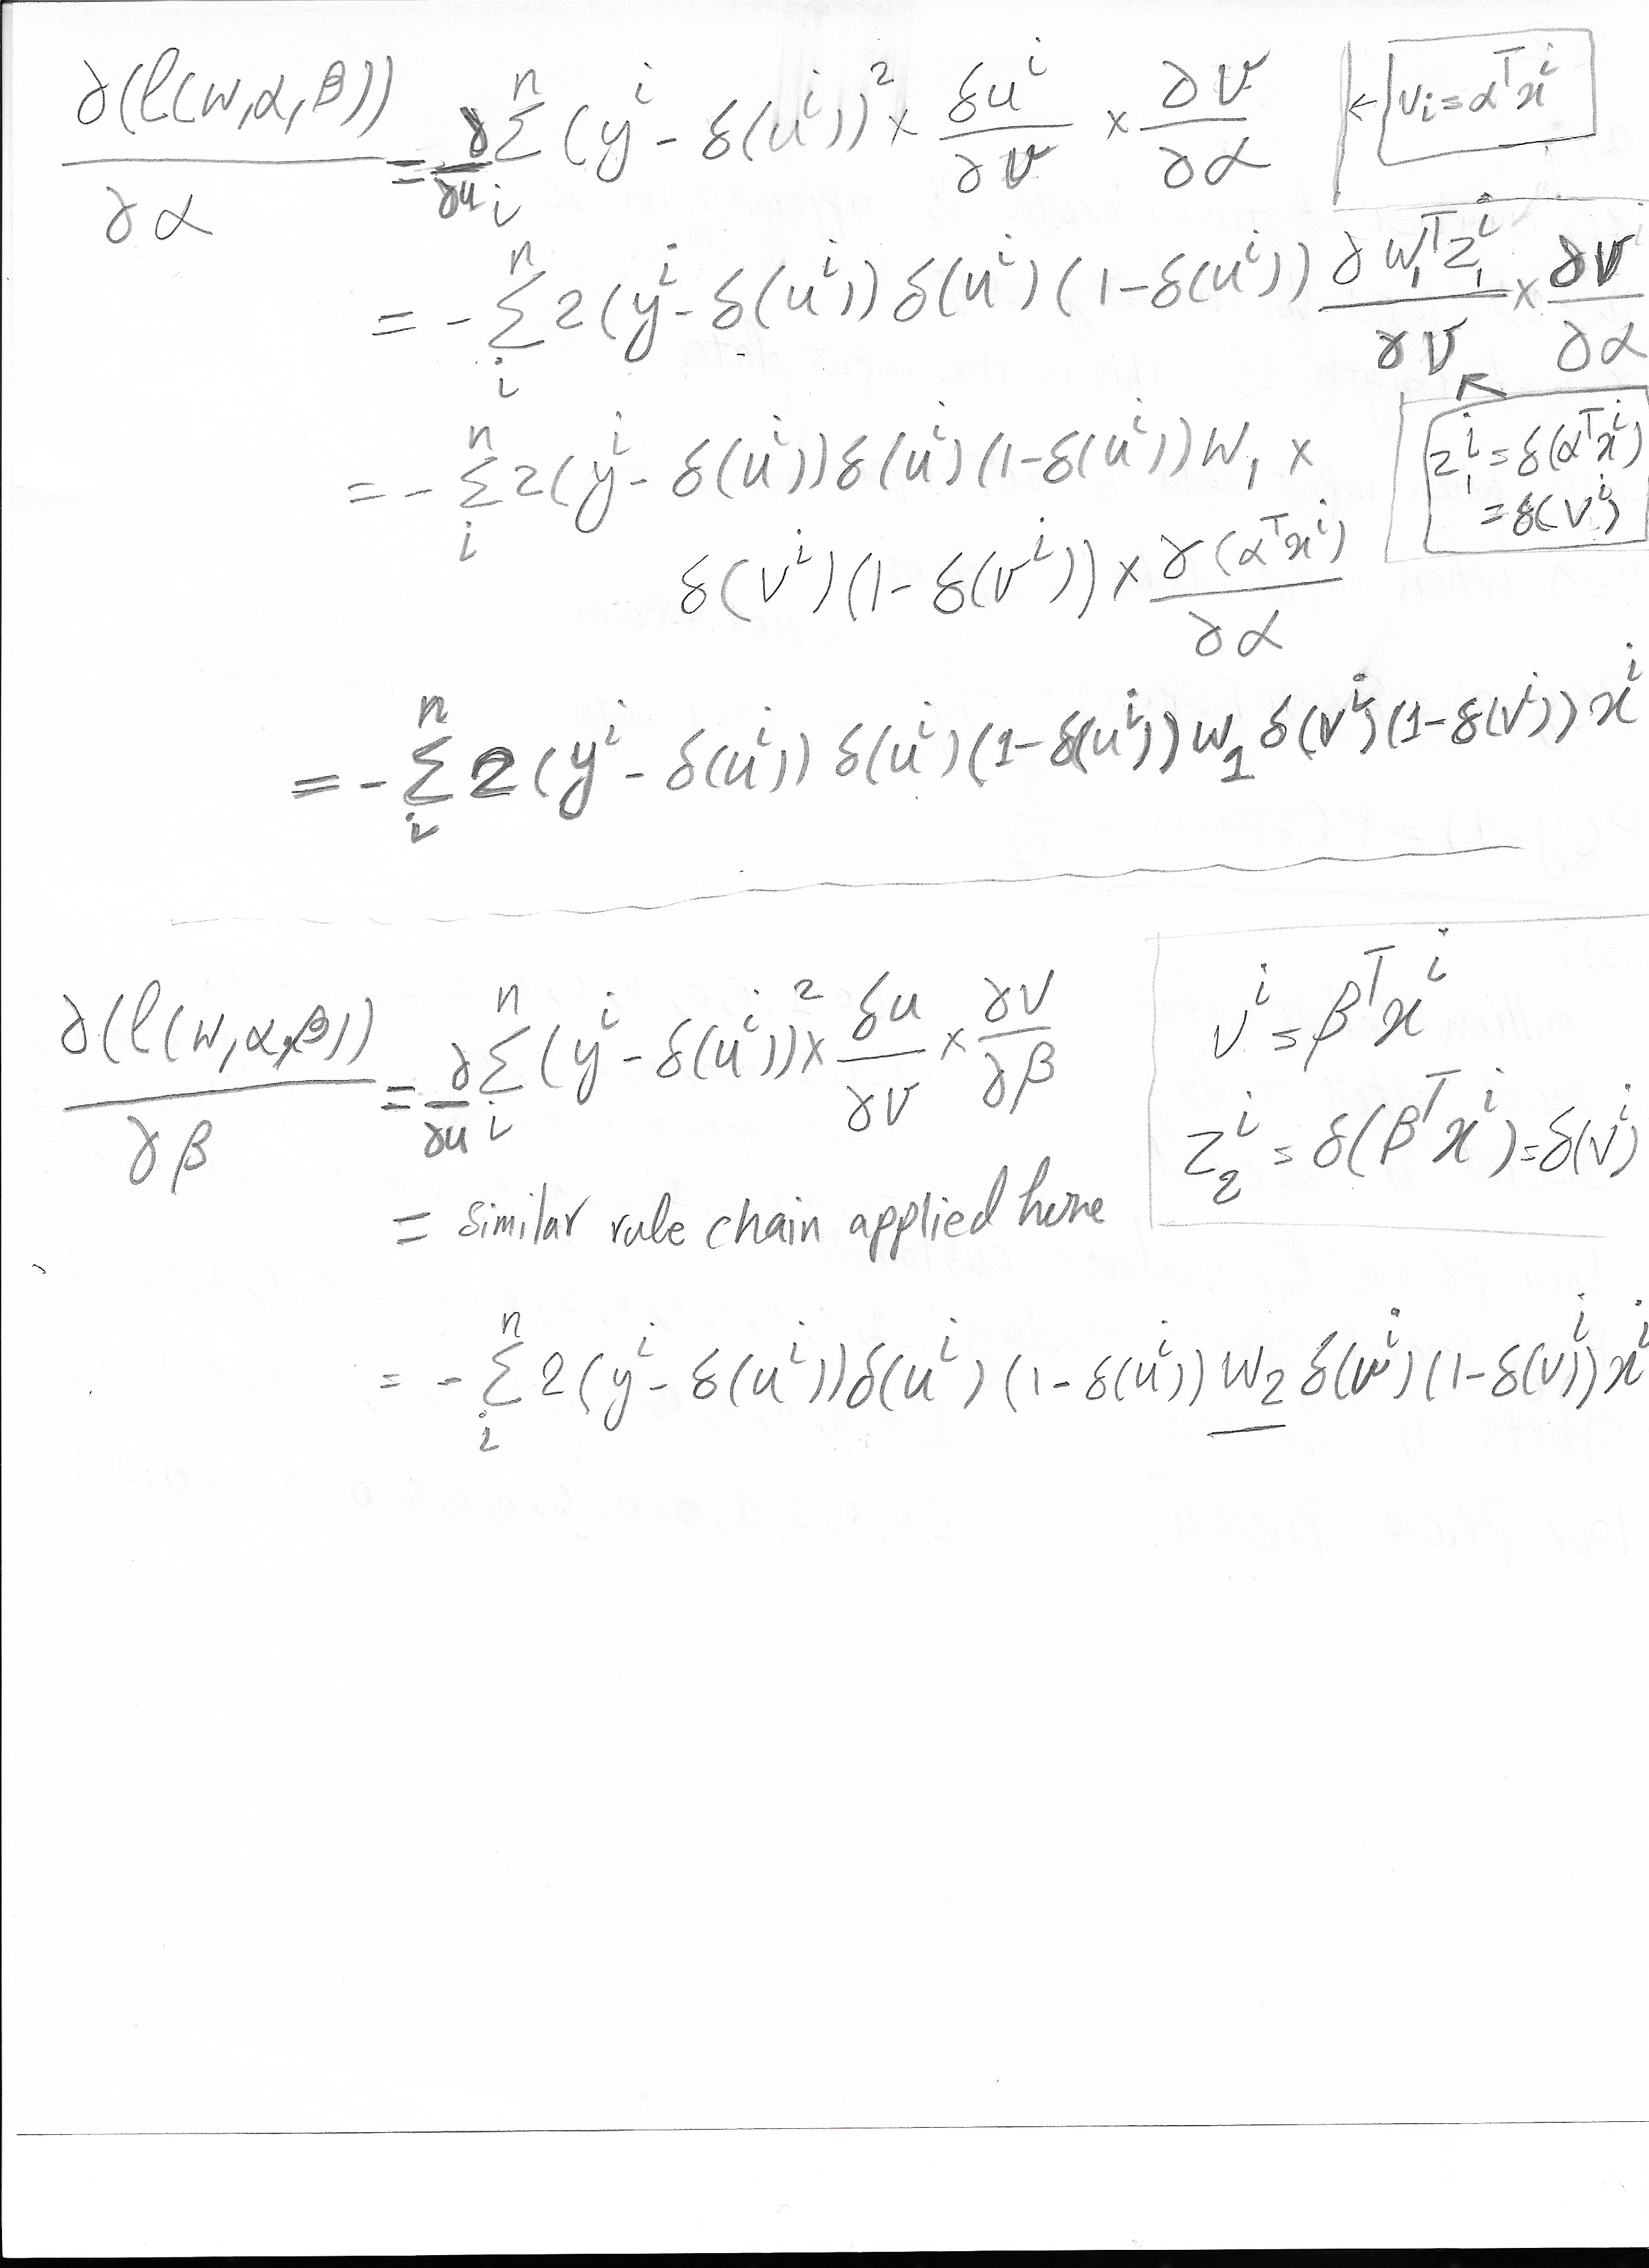 ∂(l(w,α,β))/∂α = ∂/∂u Σ_i^n (y^i - δ(u^i))^2 × δu^i/∂v × ∂v/∂α ← v_i = α^T x^i
= - Σ_i^n 2(y^i - δ(u^i)) δ(u^i) (1 - δ(u^i)) ∂w_1^T z_1^i/∂v × ∂v/∂α
= - Σ_i^n 2(y^i - δ(u^i)) δ(u^i) (1 - δ(u^i)) w_1 ×
z_1^i = δ(α^T x^i)
= δ(v^i)
δ(v^i) (1 - δ(v^i)) × ∂(α^T x^i)/∂α
= - Σ_i^n 2 (y^i - δ(u^i)) δ(u^i) (1 - δ(u^i)) w_1 δ(v^i) (1 - δ(v^i)) x^i
∂(l(w,α,β))/∂β = ∂/∂u Σ_i^n (y^i - δ(u^i))^2 × δu/∂v × ∂v/∂β
v^i = β^T x^i
z_2^i = δ(β^T x^i) = δ(v^i)
= similar rule chain applied here
= - Σ_i^n 2(y^i - δ(u^i)) δ(u^i) (1 - δ(u^i)) w_2 δ(v^i) (1 - δ(v^i)) x^i